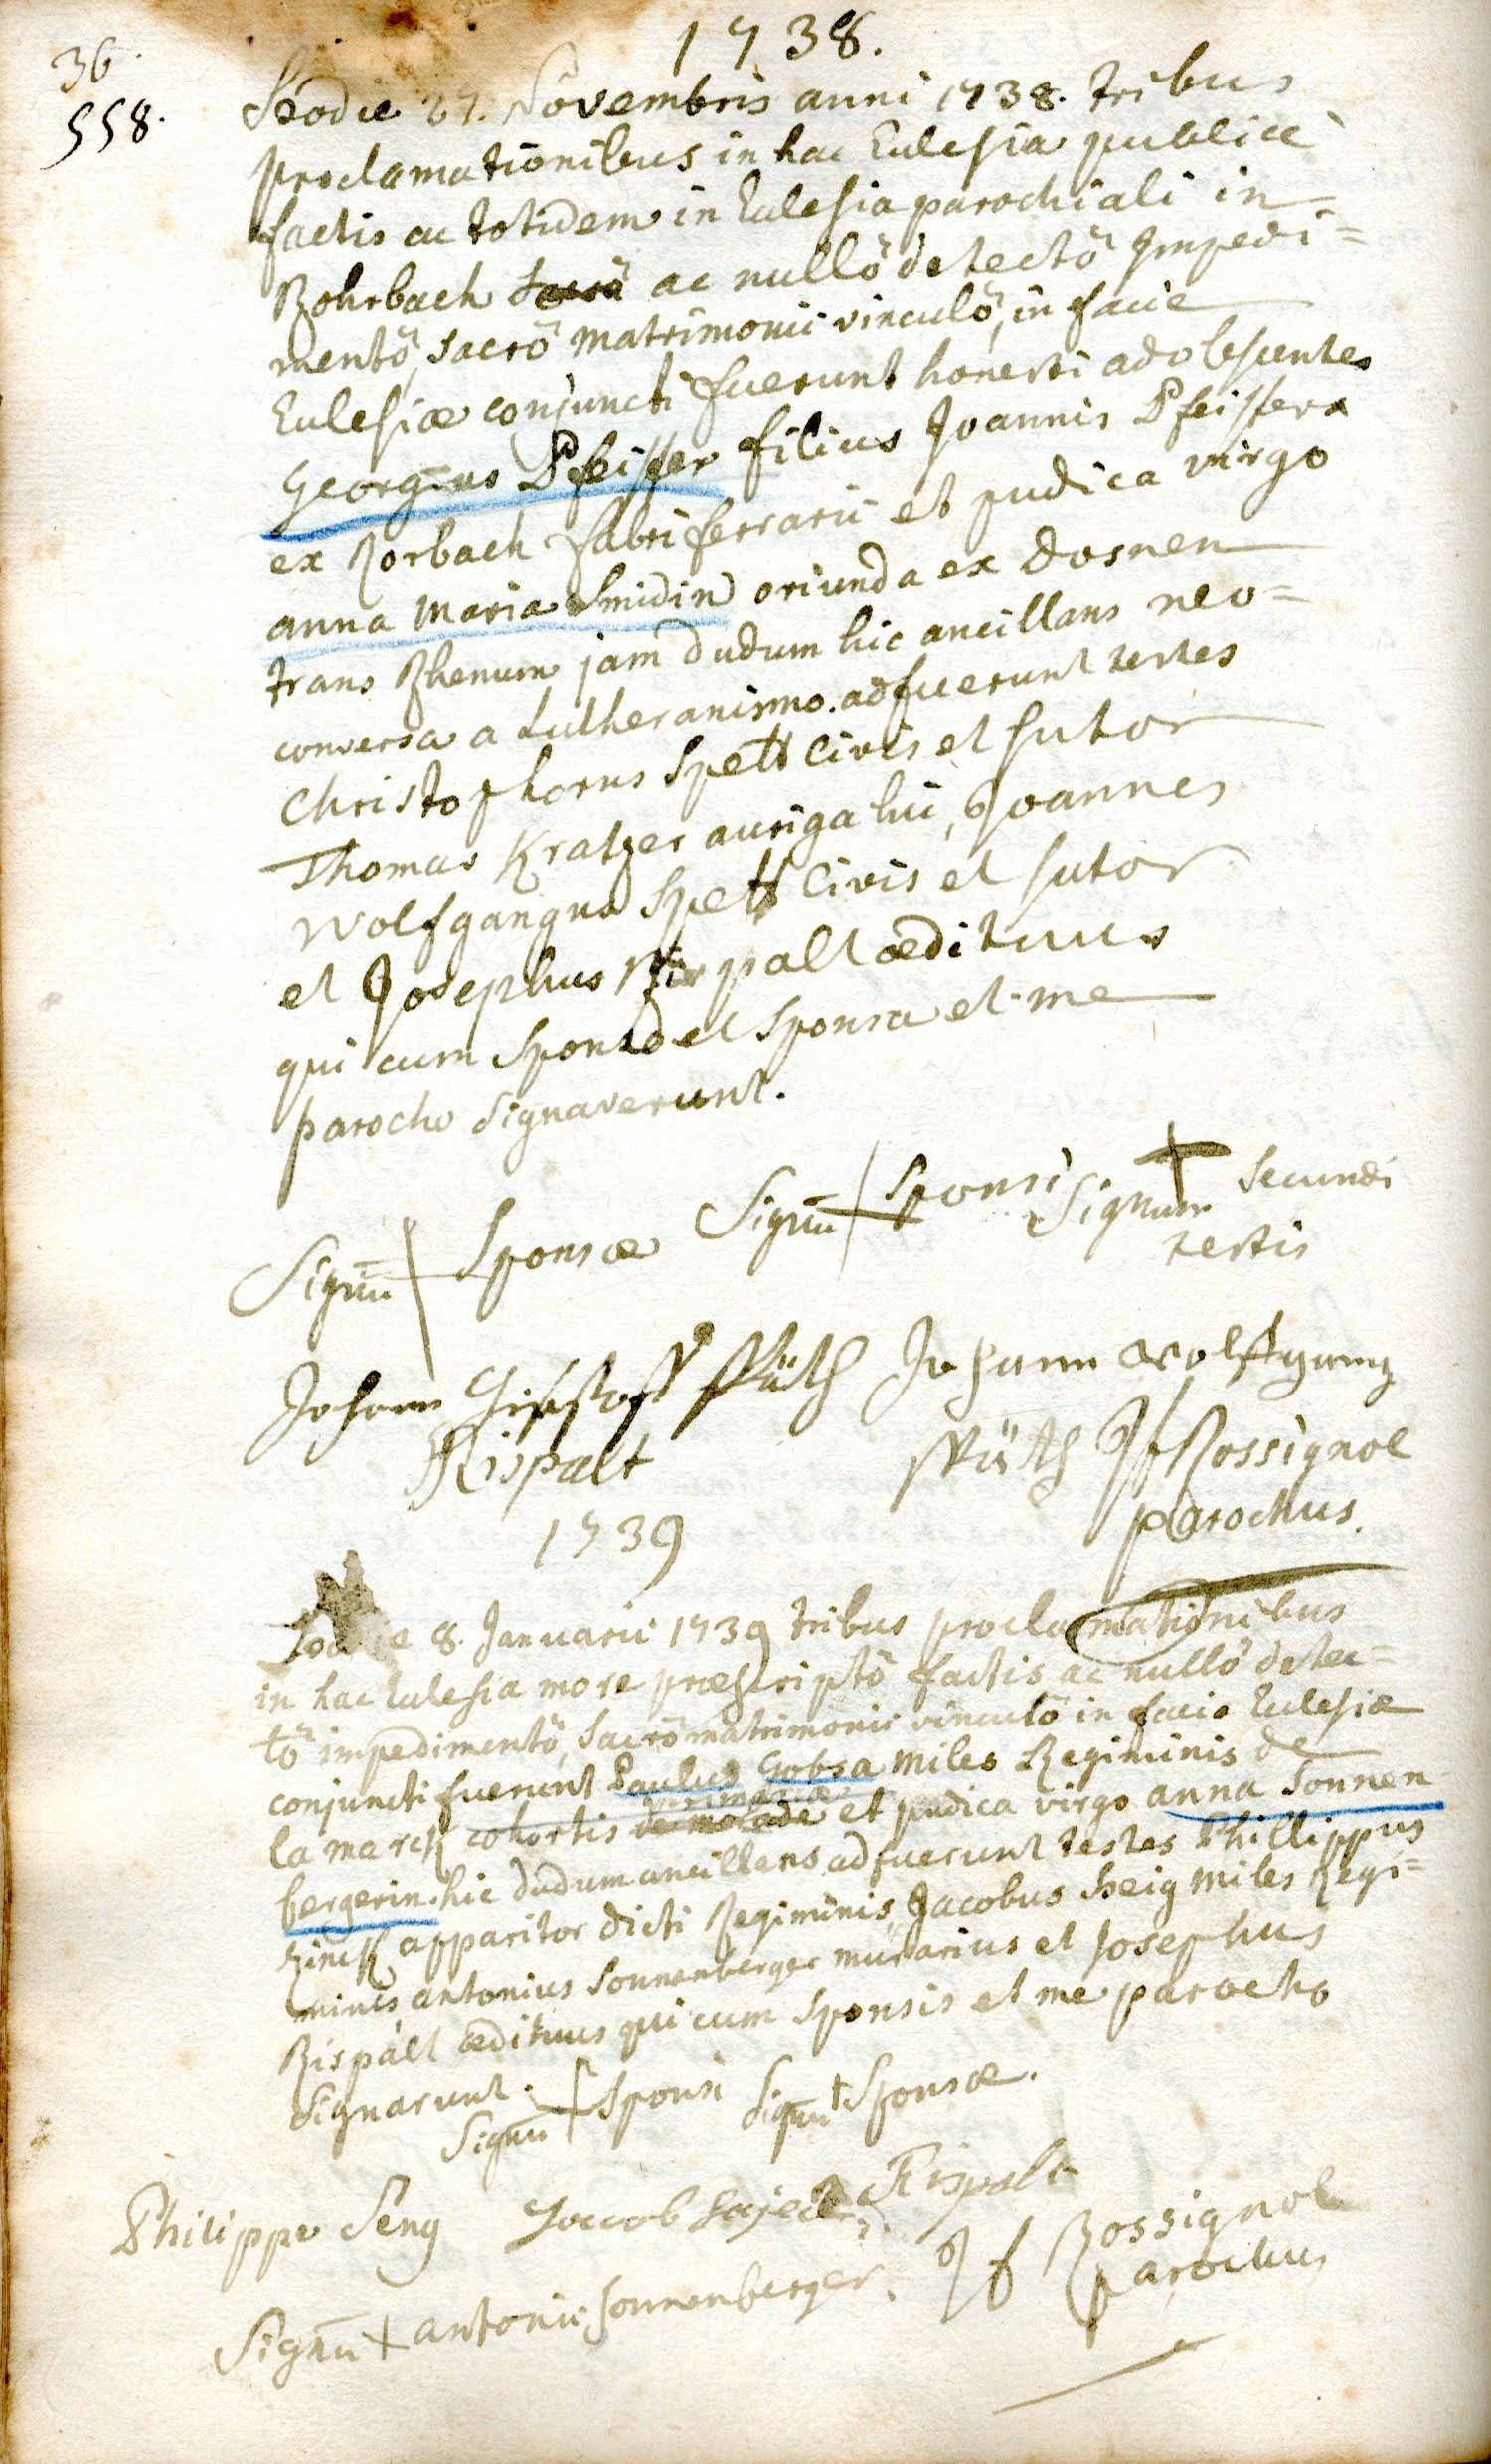 1738.
36.
558.
Hodie 27. Novembris anni 1738. tribus
proclamationibus in hac Eclesia publice
factis ac totidem in Eclesia parochiali in
Rohrbach ac nullô detectô Impedi=
mentô, sacrô matrimonii vinculô, in facie
Eclesiæ conjuncti fuerunt honesti adolescentes
Georgius Pfeiffer filius Joannis Pfeiffers
ex Rorbach fabri ferrarii et pudica virgo
anna maria Smidin oriunda ex Dosnen
trans Rhenum jam dudum hic ancillans neo=
conversa a Lutheranismo. adfuerunt testes
Christophorus Spett civis et sutor
Thomas Kratzer auriga hic, Joannes
Wolfgangus Spett civis et sutor
et Josephus Rispalt ædituus
qui cum Sponso et Sponsa et me
parocho signaverunt.
Signū Sponsæ Signū Sponsi Signum secundi
testis
Johann Späth Johann Wolfgang
Rispalt Späth Jf Rossignol
parochus.
1739
Hodie 8. Januarii 1739 tribus proclamationibus
in hac Eclesia more præscriptô factis ac nullô detec=
tô impedimentô, sacrô matrimonii vinculô in facie Eclesiæ
conjuncti fuerunt Paulus Gobsa miles Regiminis de
primariæ
la marck cohortis et pudica virgo anna Sonnen
bergerin hic dudum ancillans adfuerunt testes Phillippus
apparitor dicti Regiminis, Jacobus Heig miles Regi=
minis antonius Sonnenberger murarius et Josephus
Rispalt ædituus qui cum Sponsis et me parocho
signarunt.
Signū Sponsi Signū Sponsæ.
Philippe Seng Jacob Rispalt
Signū + antonii Sonnenberger. Jf Rossignol
parochus